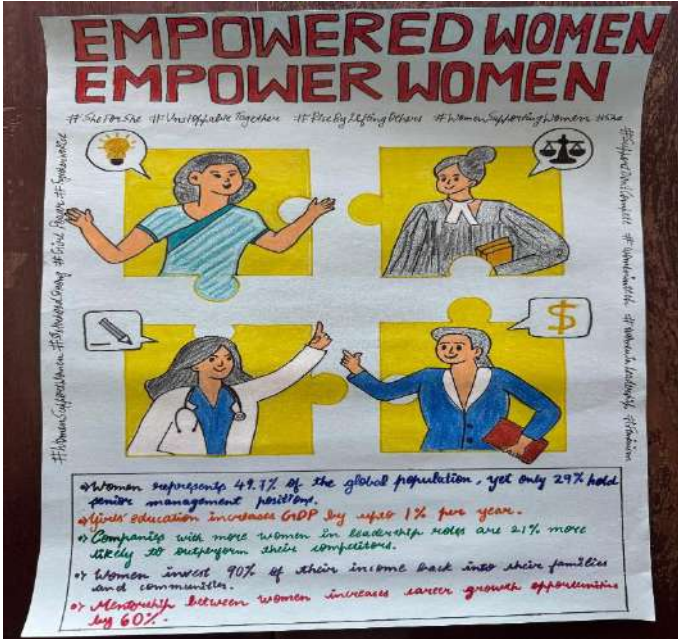 EMPOWERED WOMEN
EMPOWER WOMEN
#SheForShe #UnstoppableTogether #RiseByLiftingOthers #WomenSupportingWomen #She
#WomenSupportWomen #SisterhoodStrong #Girl Power
#SupportDontCompete #WomeninSTEM #WomeninLeadership #Feminism
$
Women represents 49.7% of the global population, yet only 29% hold
senior management positions.
Girls' education increases GDP by upto 1% per year.
Companies with more women in leadership roles are 21% more
likely to outperform their competitors.
Women invest 90% of their income back into their families
and communities.
Mentorship between women increases career growth opportunities
by 60%.